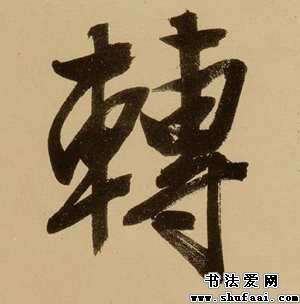 轉
书法爱网
www.shufaai.com